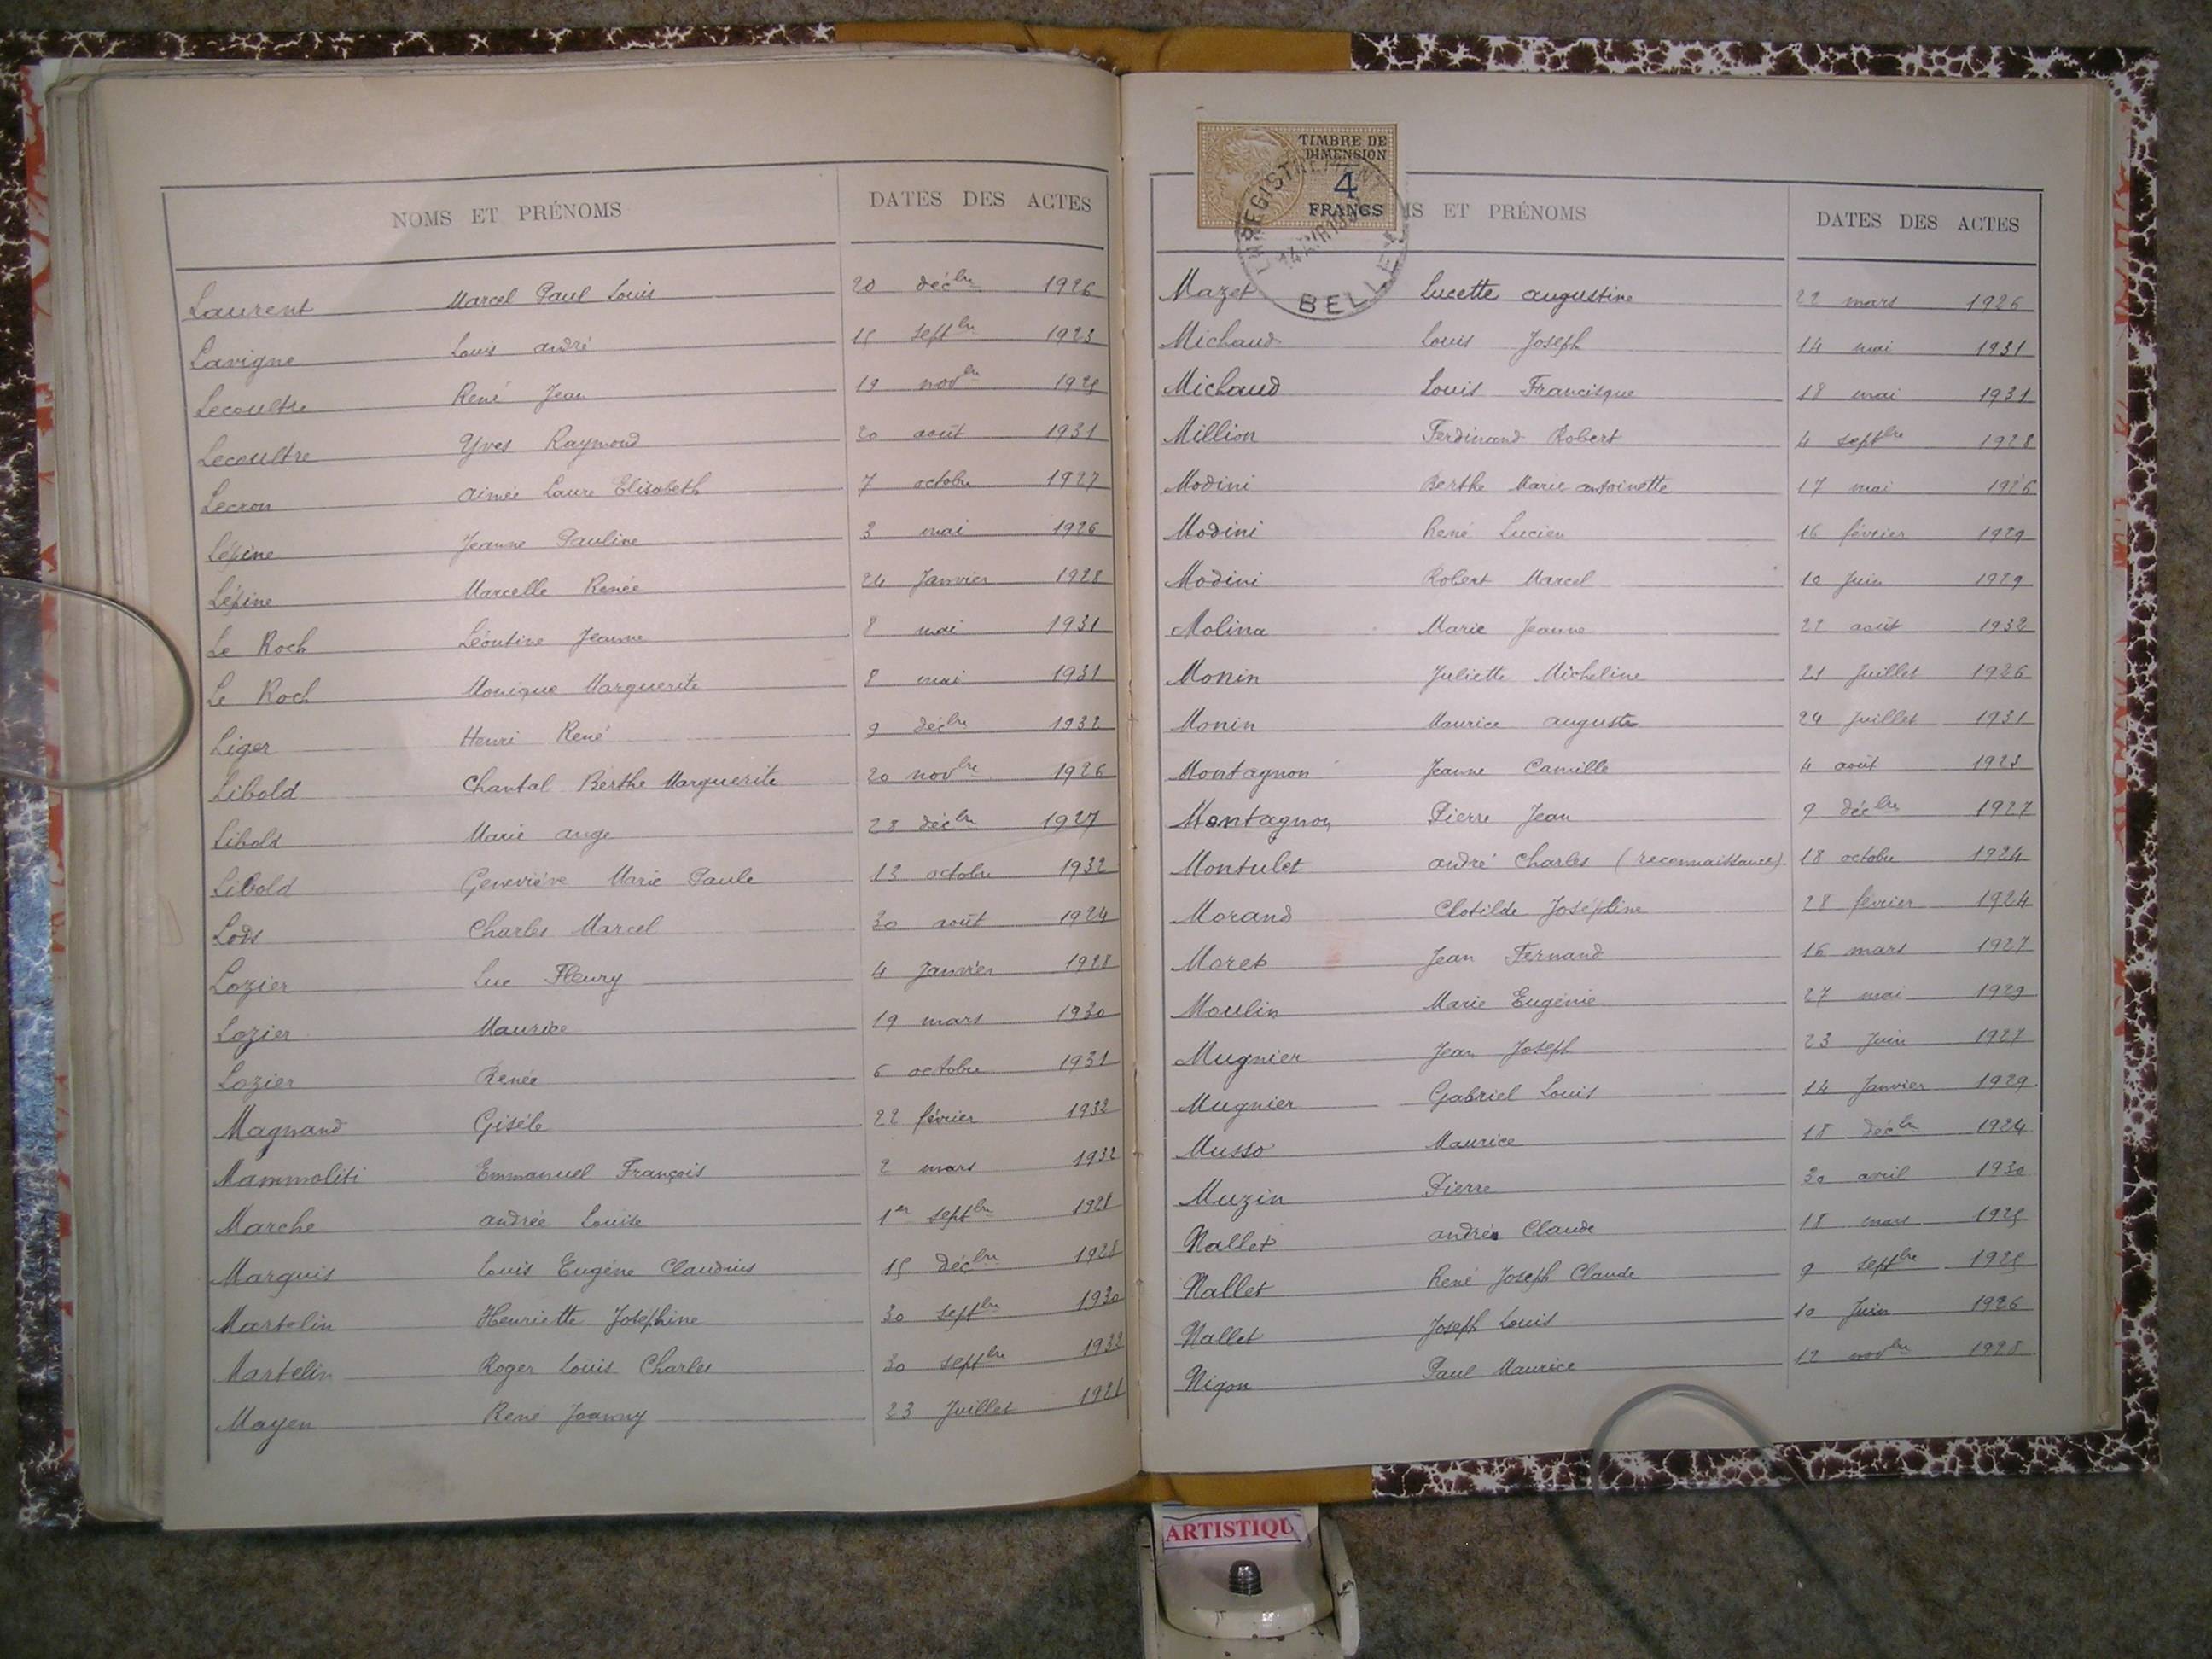 NOMS ET PRÉNOMS DATES DES ACTES
Laurent Marcel Paul Louis 20 décbre 1926
Lavigne Louis andré 15 septbre 1923
Lecoultre René Jean 19 novbre 1925
Lecoultre Yves Raymond 20 août 1931
Lecron aimée Laure Elisabeth 7 octobre 1927
Lépine Jeanne Pauline 3 mai 1926
Lépine Marcelle Renée 24 Janvier 1928
Le Roch Léontine Jeanne 8 mai 1931
Le Roch Monique Marguerite 8 mai 1931
Liger Henri René 9 décbre 1932
Libold Chantal Berthe Marguerite 20 novbre 1926
Libold Marie ange 28 décbre 1927
Libold Geneviève Marie Paule 13 octobre 1932
Lods Charles Marcel 30 août 1924
Lozier Luc Fleury 4 Janvier 1928
Lozier Maurice 19 mars 1930
Lozier Renée 6 octobre 1931
Magnand Gisèle 22 février 1932
Mammoliti Emmanuel François 2 mars 1932
Marche andrée Louise 1er septbre 1928
Marquis Louis Eugène Claudius 15 décbre 1928
Martelin Henriette Joséphine 30 septbre 1930
Martelin Roger Louis Charles 30 septbre 1932
Mayen René Joanny 23 Juillet
TIMBRE DE
DIMENSION
4
FRANCS
ENREGISTREMENT
BELLEY
MS ET PRÉNOMS DATES DES ACTES
Mazet Lucette augustine 22 mars 1926
Michaud Louis Joseph 14 mai 1931
Michaud Louis Francisque 18 mai 1931
Million Ferdinand Robert 4 septbre 1928
Modini Berthe Marie antoinette 17 mai 1926
Modini René Lucien 16 février 1929
Modini Robert Marcel 10 Juin 1929
Molina Marie Jeanne 22 août 1932
Monin Juliette Micheline 21 Juillet 1926
Monin Maurice auguste 24 Juillet 1931
Montagnon Jeanne Camille 4 août 1923
Montagnon Pierre Jean 9 décbre 1927
Montulet andré Charles (reconnaissance) 18 octobre 1924
Morand Clotilde Joséphine 28 février 1924
Moret Jean Fernand 16 mars 1927
Moulin Marie Eugénie 27 mai 1929
Mugnier Jean Joseph 23 Juin 1927
Mugnier Gabriel Louis 14 Janvier 1929
Musso Maurice 18 décbre 1924
Muzin Pierre 30 avril 1930
Nallet andré Claude 18 mars 1925
Nallet René Joseph Claude 9 septbre 1925
Nallet Joseph Louis 10 Juin 1926
Nigon Paul Maurice 12 novbre 1928
ARTISTIQU